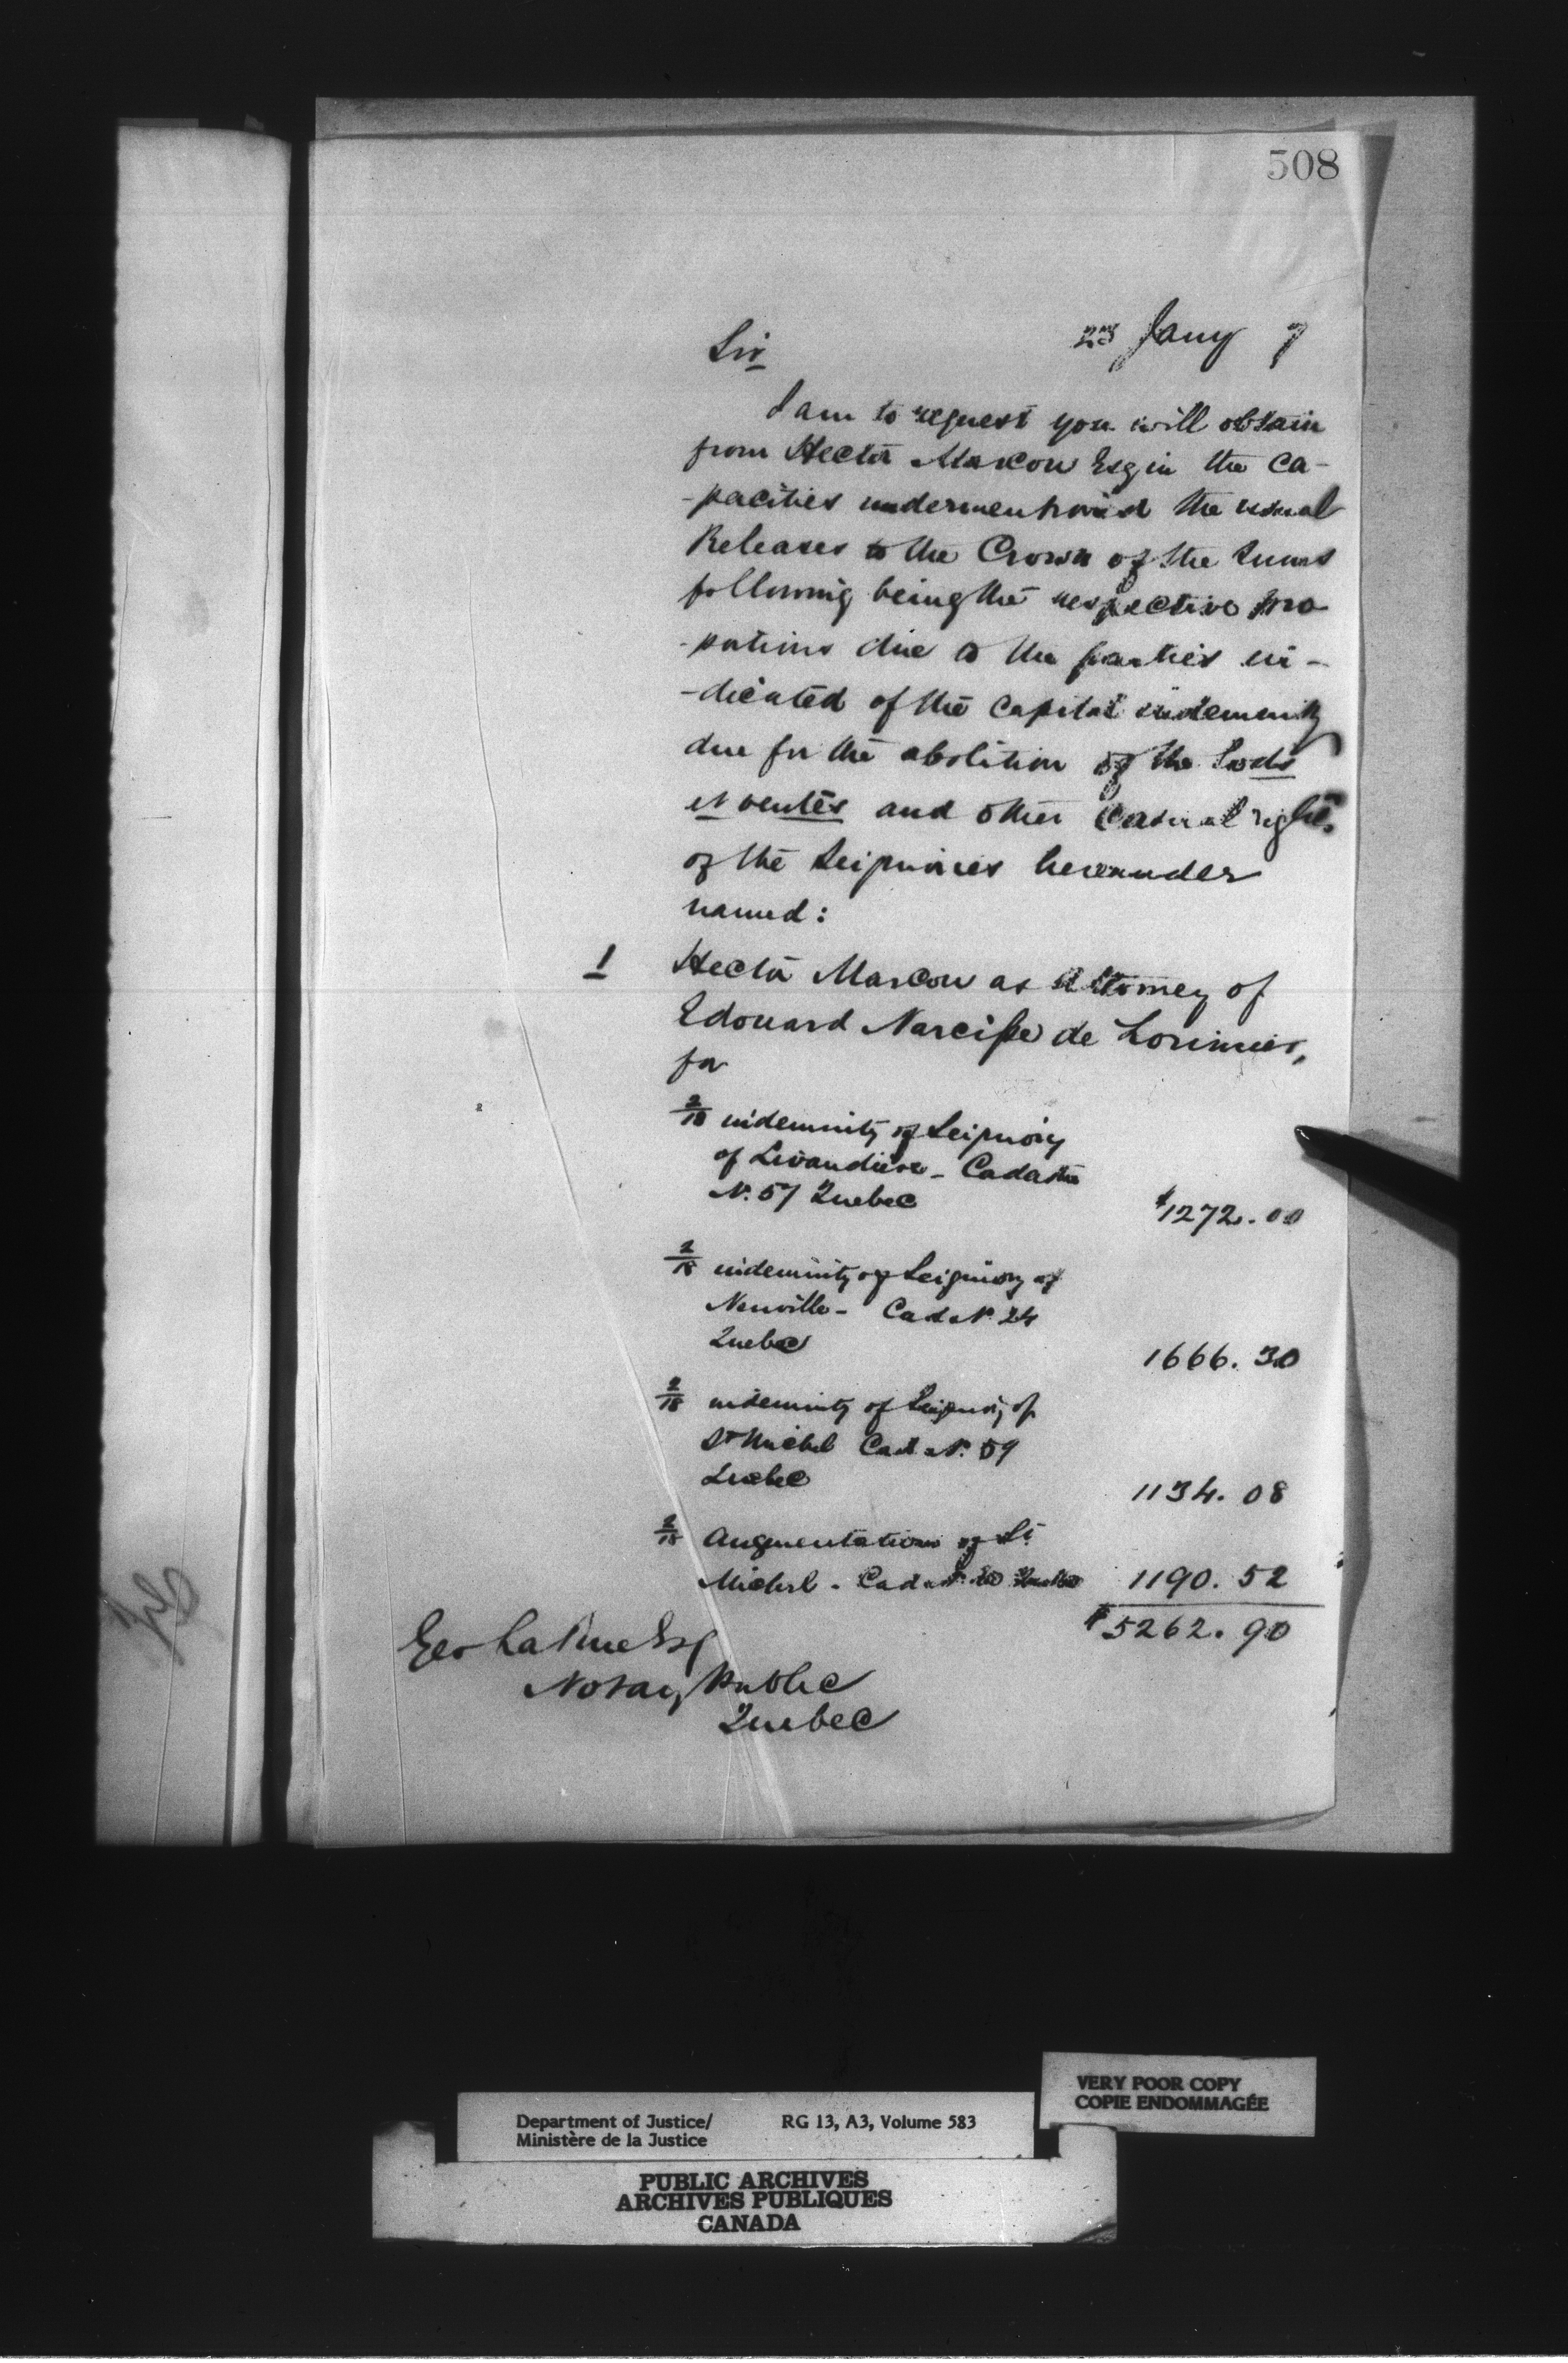 508
23 Jany 7
Sir
I am to request you will obtain
from Hector Marcou Esq in the ca-
-pacities undermentioned the usual
Releases to the Crown of the sums
following being the respective pro
-portions due to the parties in-
-dicated of the Capital indemnity
due for the abolition of the Lods
et ventes and other Casual rights
of the Seigniories hereunder
named:
1 Hector Marcou as Attorney of
Edouard Narcisse de Lorimier,
for
2/18 indemnity of Seigniory
of Livaudière - Cadastre
No. 57 Quebec $1272.00
2/18 indemnity of Seigniory of
Neuville - Cad No. 24
Quebec 1666.30
2/18 indemnity of Seigniory of
St Michel Cad No. 59
Quebec 1134.08
2/18 Augmentation of St.
Michel - Cad No. 60 Quebec 1190.52
$5262.90
Geo LaRue Esq
Notary Public
Quebec
VERY POOR COPY
COPIE ENDOMMAGÉE
Department of Justice/ RG 13, A3, Volume 583
Ministère de la Justice
PUBLIC ARCHIVES
ARCHIVES PUBLIQUES
CANADA